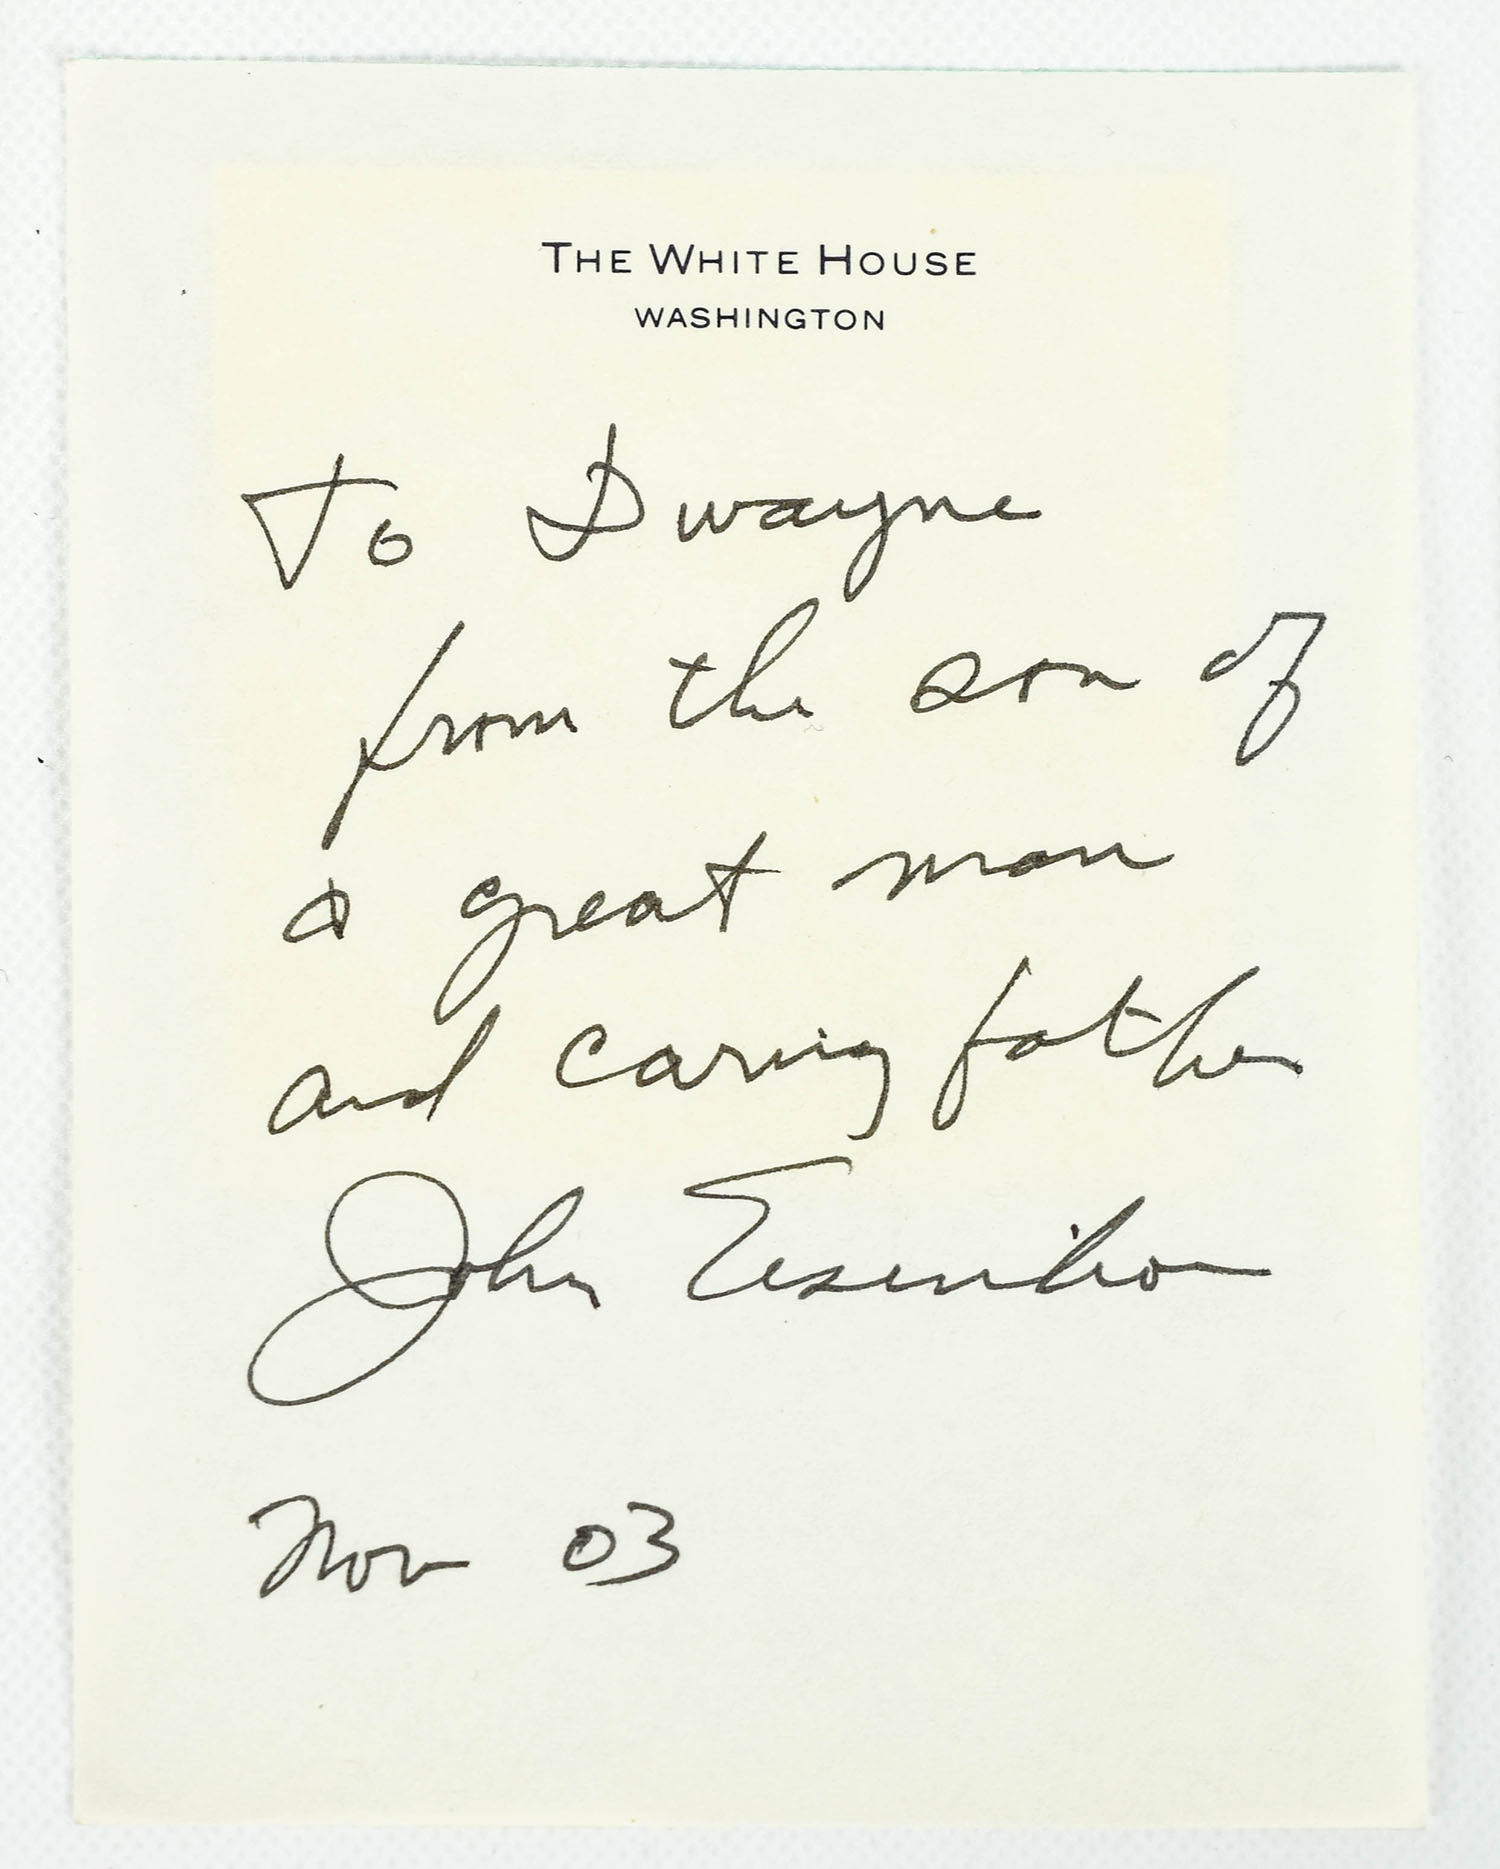 THE WHITE HOUSE
WASHINGTON
To Dwayne
from the son of
a great man
and caring father
John Eisenhower
Nov 03